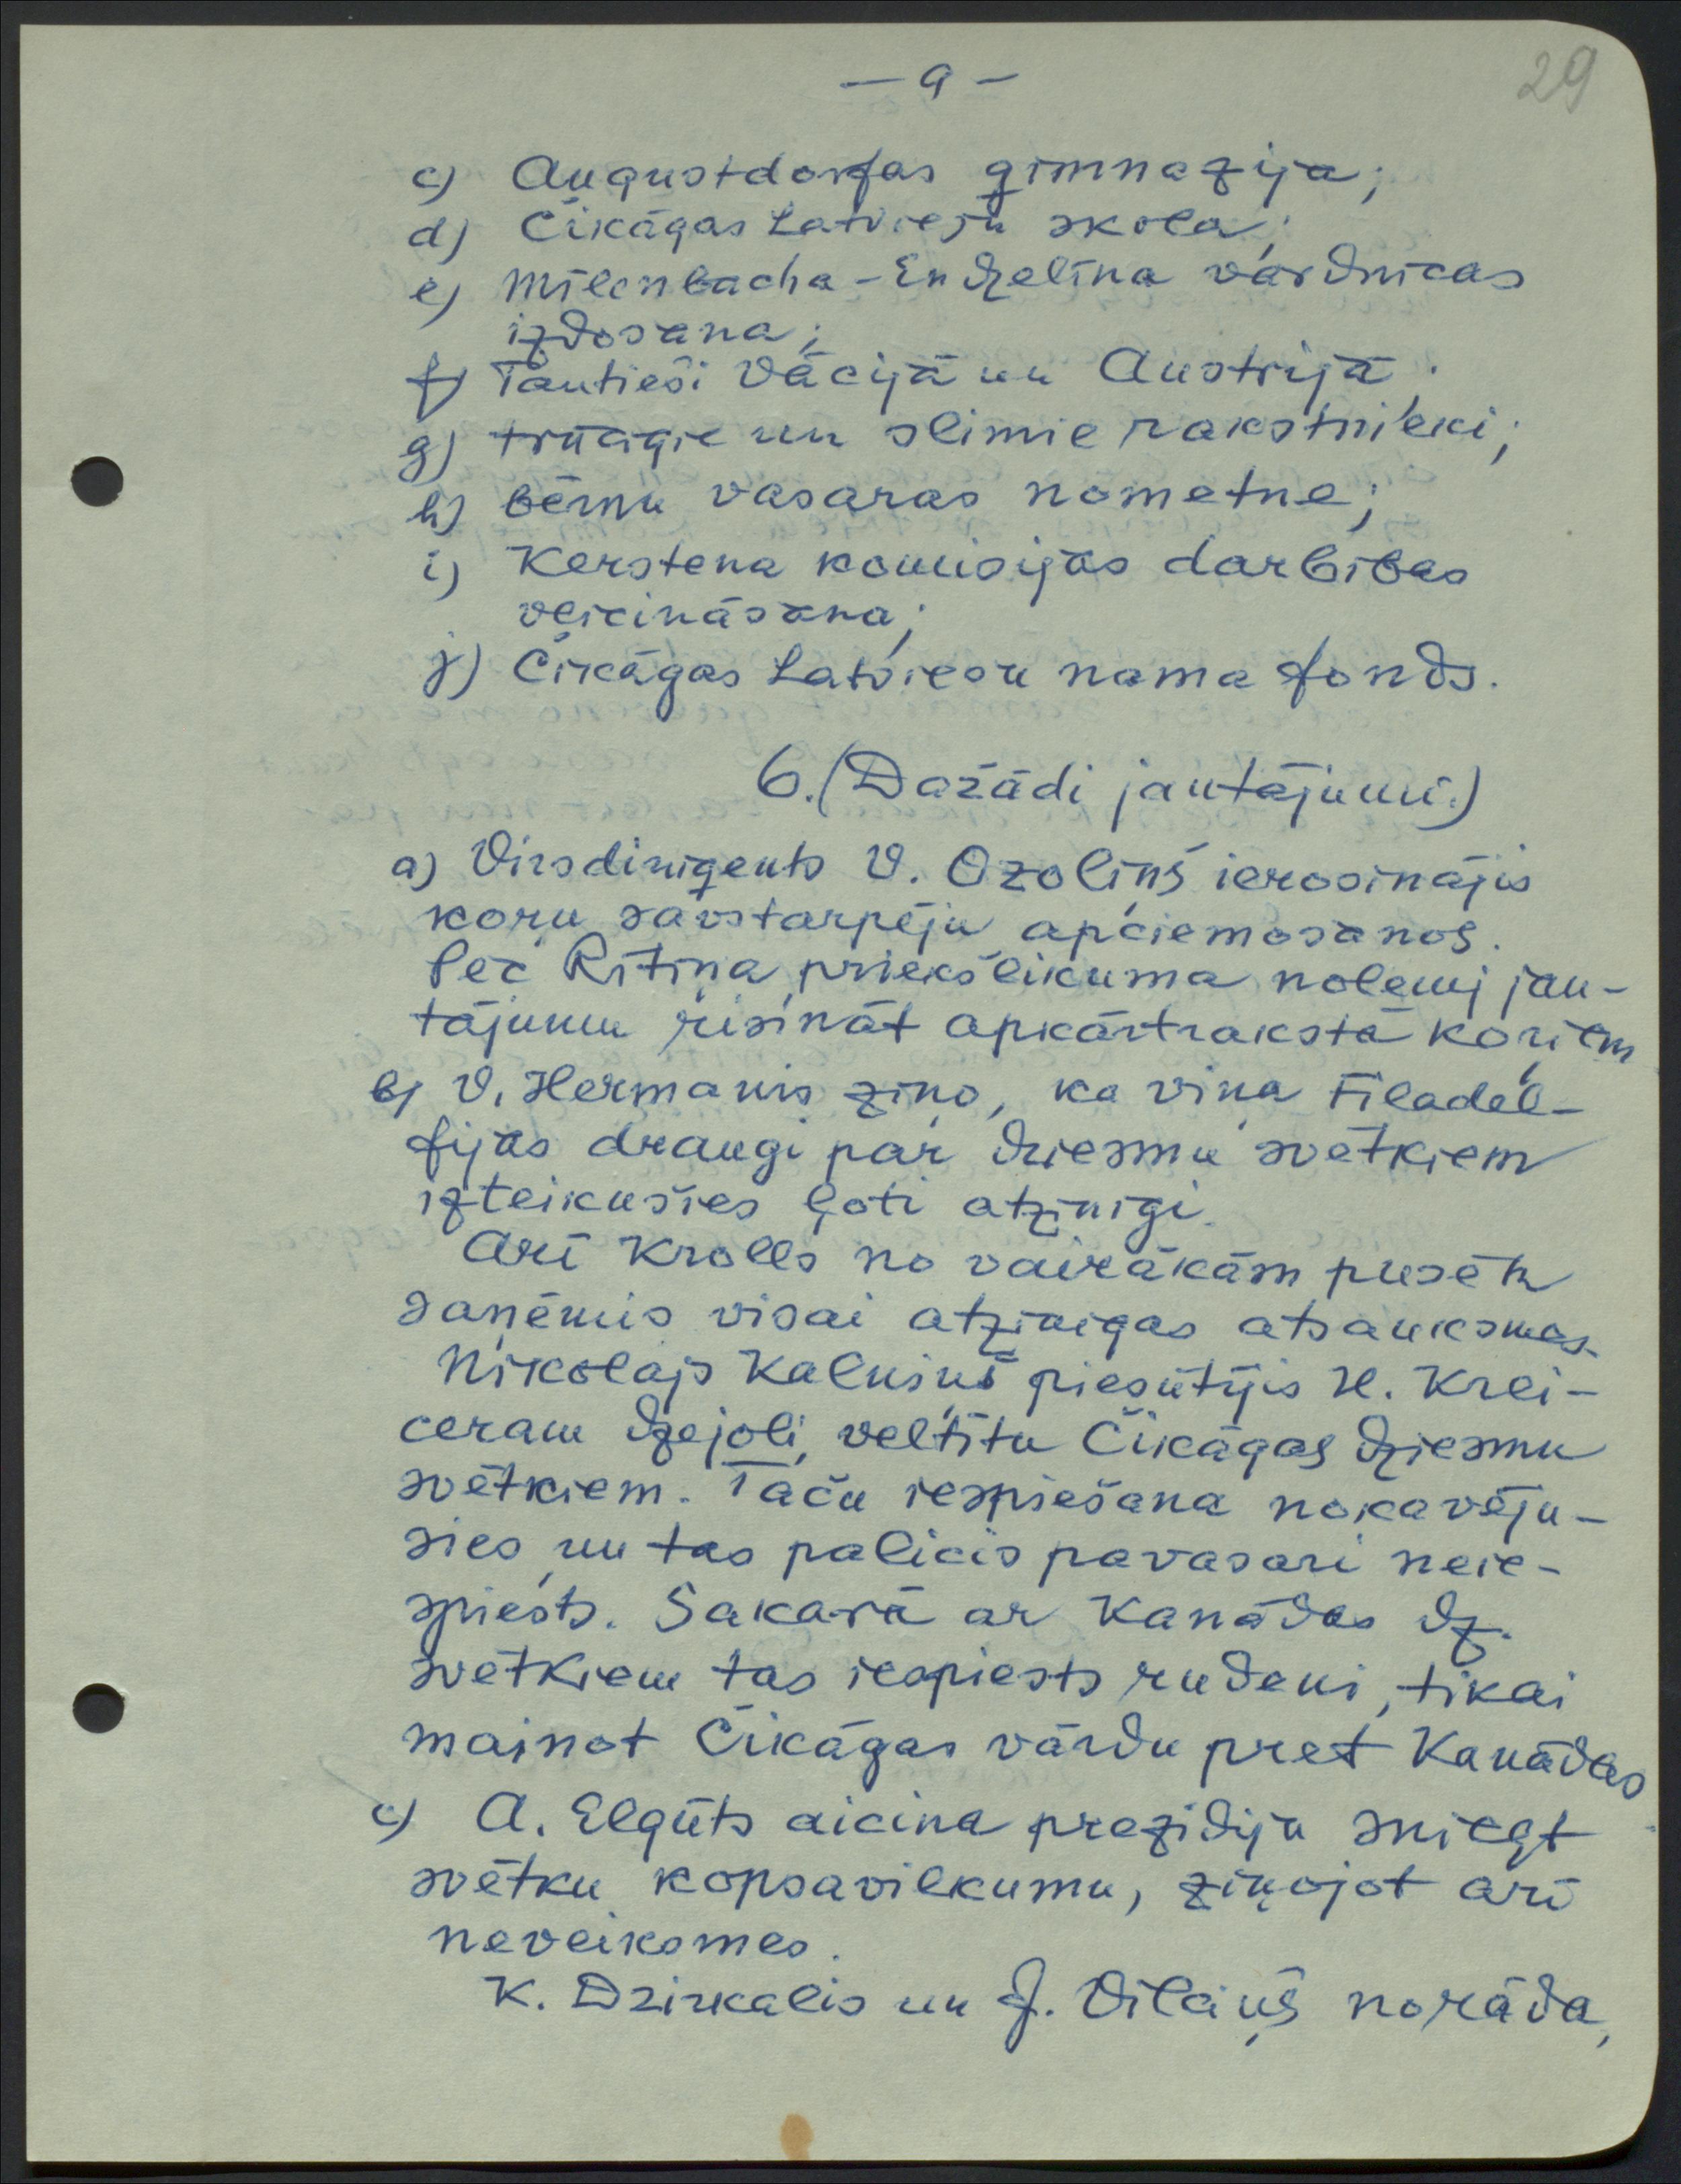 — 9 —
29
c) Augustdorfas ģimnazija;
d) Čikāgas Latviešu skola;
e) Mīlenbacha-Endzelīna vārdnīcas
izdošana;
f) Tautieši Vācijā un Austrijā.
g) trūcīgie un slimie rakstnieki;
h) bērnu vasaras nometne;
i) Kerstena komisijas darbības
veicināšana;
j) Čikāgas Latviešu nama fonds.
6. (Dažādi jautājumi.)
a) Virsdiriģents V. Ozoliņš ierosinājis
koŗu savstarpēju apciemošanos.
Pēc Rītiņa priekšlikuma nolemj jau-
tājumu risināt apkārtrakstā koŗiem
b) V. Hermanis ziņo, ka viņa Filadel-
fijas draugi par dziesmu svētkiem
izteikušies ļoti atzinīgi.
Arī Krolls no vairākām pusēm
saņēmis visai atzinīgas atsauksmes.
Nikolajs Kalniņš piesūtījis H. Krei-
ceram dzejoli, veltītu Čikāgas dziesmu
svētkiem. Taču iespiešana nokavēju-
sies, un tas palicis pavasarī neie-
spiests. Sakarā ar Kanādas dz.
svētkiem tas iespiests rudenī, tikai
mainot Čikāgas vārdu pret Kanādas
c) A. Elgūts aicina prezidiju sniegt
svētku kopsavilkumu, ziņojot arī
neveiksmes.
K. Dzirkalis un J. Vilciņš norāda,